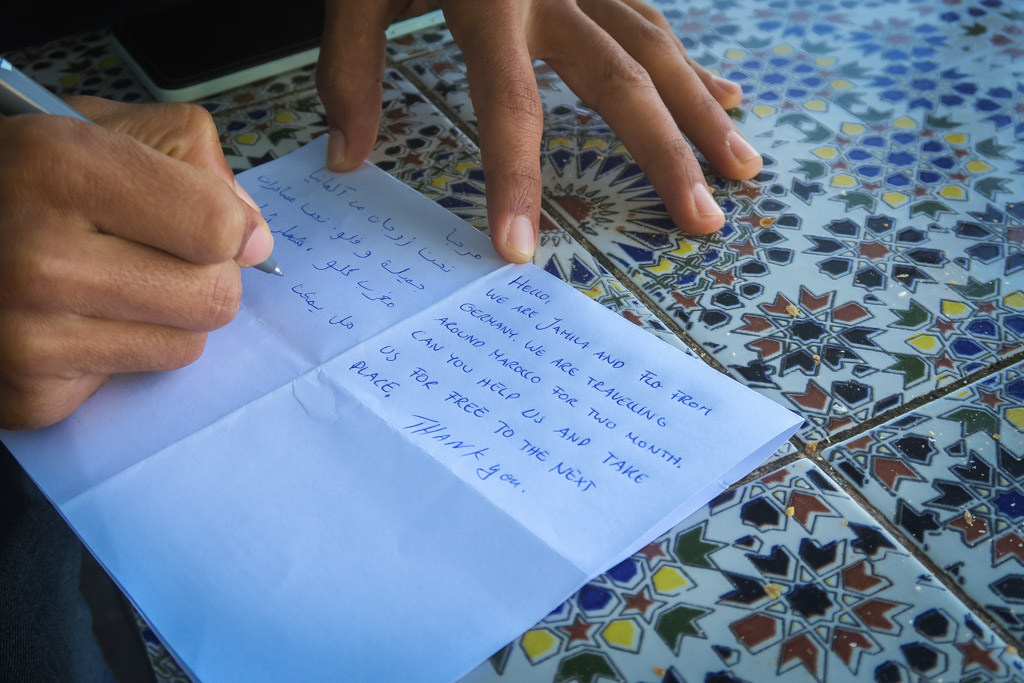 مرحبا
زوجان من ألمانيا
جميلة وفلو
كلو
هل يمكن
HELLO,
WE ARE JAMILA AND FLO FROM
GERMANY. WE ARE TRAVELLING
AROUND MAROCCO FOR TWO MONTH.
CAN YOU HELP US AND TAKE
US FOR FREE TO THE NEXT
PLACE.
THANK you.